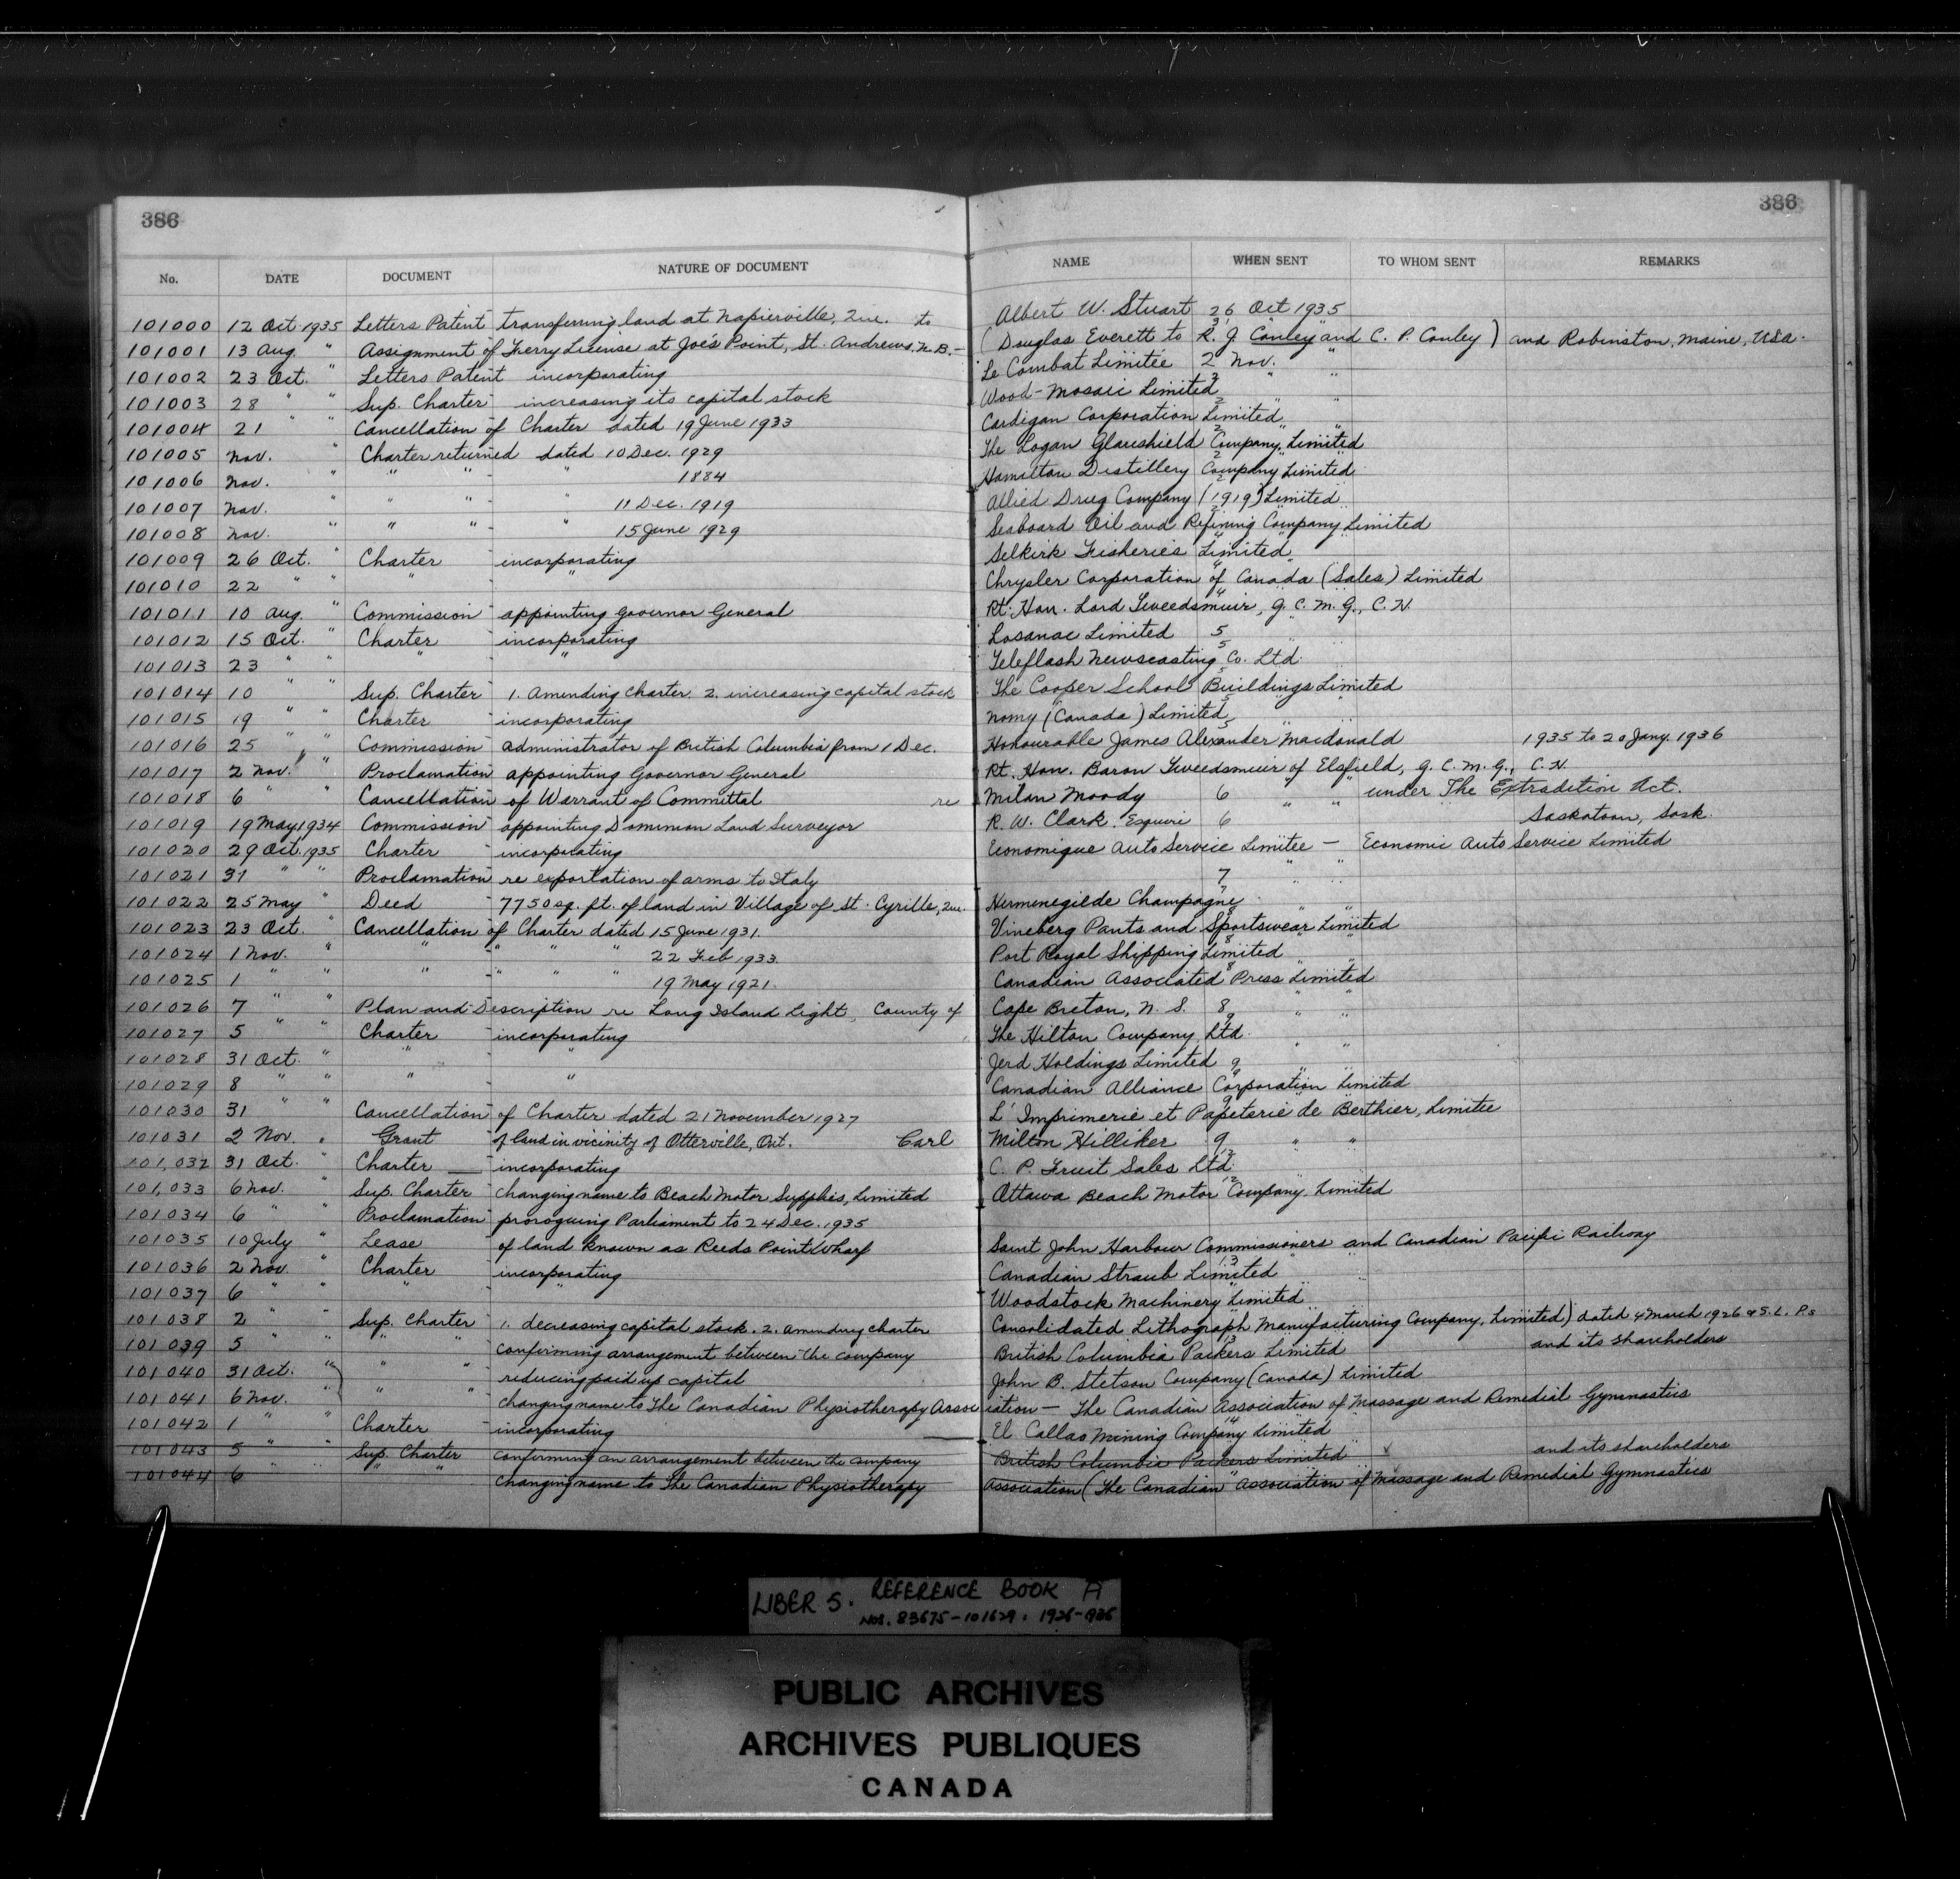 386 386
No. DATE DOCUMENT NATURE OF DOCUMENT NAME WHEN SENT TO WHOM SENT REMARKS
101000 12 Oct 1935 Letters Patent transferring land at Napierville, Que. to Albert W. Stuart 26 Oct 1935
101001 13 Aug. " Assignment of Ferry License at Joe's Point, St. Andrews, N.B. - (Douglas Everett to R. J. Conley and C. P. Conley) and Robinston, Maine, USA.
101002 23 Oct. " Letters Patent incorporating Le Combat Limitée 2 Nov. "
101003 28 " " Sup. Charter increasing its capital stock Wood-Mosaic Limited 2 " "
101004 21 " " Cancellation of Charter dated 19 June 1933 Cardigan Corporation Limited 2 " "
101005 Nov. " Charter returned dated 10 Dec. 1929 The Logan Glareshield Company Limited 2 " "
101006 Nov. " " " " 1884 Hamilton Distillery Company Limited 2 " "
101007 Nov. " " " " 11 Dec. 1919 Allied Drug Company (1919) Limited 2 " "
101008 Nov. " " " " 15 June 1929 Seaboard Oil and Refining Company Limited 2
101009 26 Oct. " Charter incorporating Selkirk Fisheries Limited 4 "
101010 22 " " " " Chrysler Corporation of Canada (Sales) Limited 4
101011 10 Aug. " Commission appointing Governor General Rt. Hon. Lord Tweedsmuir, G.C.M.G., C.H. 4
101012 15 Oct. " Charter incorporating Losanac Limited 5 " "
101013 23 " " " " Teleflash Newscasting Co. Ltd. 5
101014 10 " " Sup. Charter 1. Amending charter. 2. increasing capital stock The Cooper School Buildings Limited 5
101015 19 " " Charter incorporating Nomy (Canada) Limited 5 " "
101016 25 " " Commission administrator of British Columbia from 1 Dec. Honourable James Alexander Macdonald 5 1935 to 20 Jany. 1936
101017 2 Nov. " Proclamation appointing Governor General Rt. Hon. Baron Tweedsmuir of Elsfield, G.C.M.G., C.H.
101018 6 " " Cancellation of Warrant of Committal re Milan Moody 6 " " under The Extradition Act.
101019 19 May 1934 Commission appointing Dominion Land Surveyor R. W. Clark. Esquire 6 " " Saskatoon, Sask.
101020 29 Oct. 1935 Charter incorporating Economique Auto Service Limitée - Economic Auto Service Limited
101021 31 " " Proclamation re exportation of arms to Italy 7 " "
101022 25 May " Deed 7750 sq. ft. of land in Village of St. Cyrille, Que. Hermenegilde Champagne 7 " "
101023 23 Oct. " Cancellation of Charter dated 15 June 1931. Vineberg Pants and Sportswear Limited
101024 1 Nov. " " " " " 22 Feb 1933. Port Royal Shipping Limited 8 " "
101025 1 " " " " " " 19 May 1921. Canadian Associated Press Limited 8
101026 7 " " Plan and Description re Long Island Light, County of Cape Breton, N. S. 8 " "
101027 5 " " Charter incorporating The Hilton Company, Ltd. 9 " "
101028 31 Oct. " " " Jerd Holdings Limited 9 " "
101029 8 " " " " Canadian Alliance Corporation Limited 9
101030 31 " " Cancellation of Charter dated 21 November 1927 L'Imprimerie et Papeterie de Berthier, Limitée 9
101031 2 Nov. " Grant of land in vicinity of Otterville, Ont. Carl Milton Hilliker 9 " "
101,032 31 Oct. " Charter — incorporating C. P. Fruit Sales Ltd. 12
101,033 6 Nov. " Sup. Charter changing name to Beach Motor Supplies, Limited Ottawa Beach Motor Company Limited 12
101034 6 " " Proclamation proroguing Parliament to 24 Dec. 1935
101035 10 July " Lease of land known as Reeds Point Wharf Saint John Harbour Commissioners and Canadian Pacific Railway
101036 2 Nov. " Charter incorporating Canadian Straub Limited 13 "
101037 6 " " " " Woodstock Machinery Limited "
101038 2 " " Sup. Charter 1. decreasing capital stock. 2. amending charter Consolidated Lithograph Manufacturing Company, Limited) dated 4 March 1926 & S.L. Ps
101039 5 " " " " confirming arrangement between the company British Columbia Packers Limited 13 and its shareholders
101040 31 Oct. " " " reducing paid up capital John B. Stetson Company (Canada) Limited
101041 6 Nov. " " " changing name to The Canadian Physiotherapy Association — The Canadian Association of Massage and Remedial Gymnastics
101042 1 " " Charter incorporating El Callao Mining Company Limited 14
101043 5 " " Sup. Charter confirming an arrangement between the company British Columbia Packers Limited and its shareholders
101044 6 " " " " changing name to The Canadian Physiotherapy Association (The Canadian Association of Massage and Remedial Gymnastics
LIBER 5. REFERENCE BOOK A
NOS. 83675-101629. 1926-1936
PUBLIC ARCHIVES
ARCHIVES PUBLIQUES
CANADA